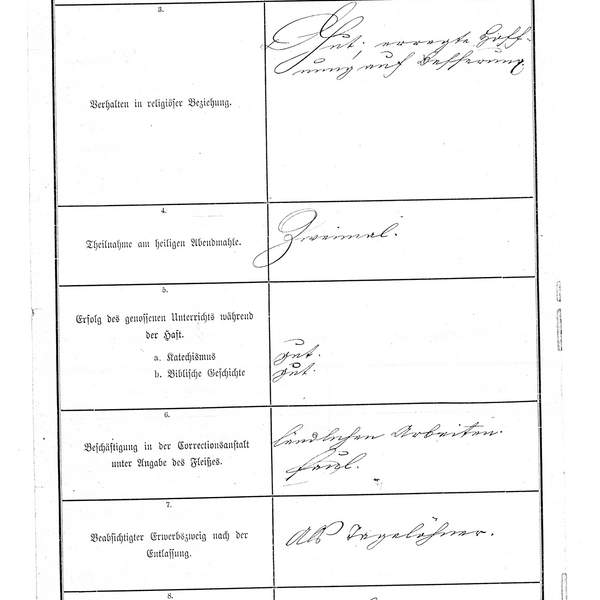 3.
Verhalten in religiöser Beziehung.
Gut, erregte Hoff-
nung auf Besserung
4.
Theilnahme am heiligen Abendmahle.
Zweimal.
5.
Erfolg des genossenen Unterrichts während
der Haft.
a. Katechismus
gut.
b. Biblische Geschichte
gut.
6.
Beschäftigung in der Correctionsanstalt
unter Angabe des Fleißes.
ländlichen Arbeiten.
faul.
7.
Beabsichtigter Erwerbszweig nach der
Entlassung.
Als Tagelöhner.
8.